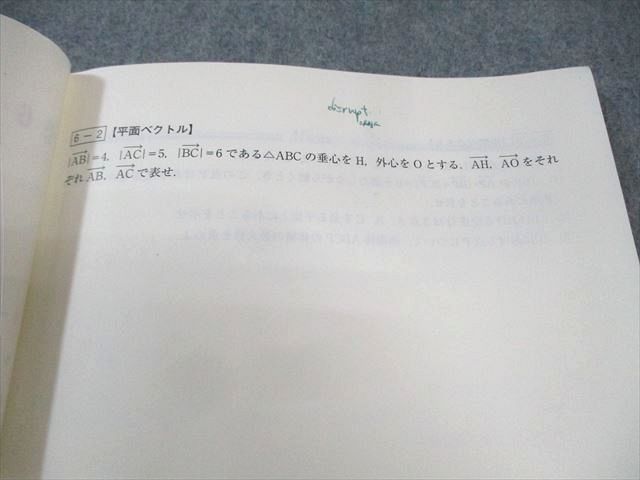 disrupt
6－2 【平面ベクトル】
|AB|=4, |AC|=5, |BC|=6である△ABCの垂心をH, 外心をOとする. AH, AOをそれ
ぞれAB, ACで表せ.